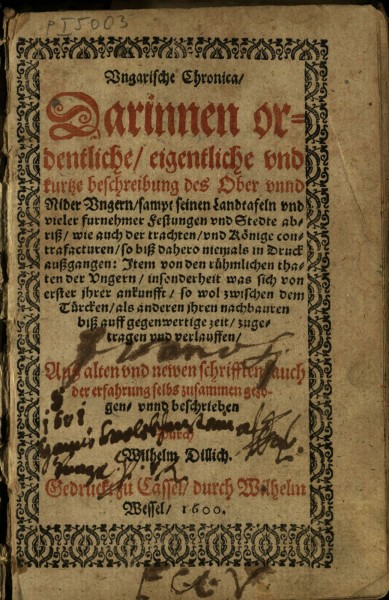 PT5003
Vngarische Chronica/
Darinnen or-
dentliche/ eigentliche vnd
kurtze beschreibung des Ober vnnd
Nider Vngern/ sampt seinen Landtafeln vnd
vieler furnehmer Festungen vnd Stedte ab-
riß/ wie auch der trachten/ vnd Könige con-
trafacturen/ so biß dahero niemals in Druck
außgangen: Item von den rühmlichen tha-
ten der Vngern/ insonderheit was sich von
erster jhrer ankunfft/ so wol zwischen dem
Türcken/ als anderen jhren nachbauren
biß auff gegenwertige zeit/ zuge-
tragen vnd verlauffen/
Auß alten vnd newen schrifften/ auch
der erfahrung selbs zusammen gezo-
gen/ vnnd beschrieben
Durch
Wilhelm Dillich.
Gedruckt zu Cassel/ durch Wilhelm
Wessel/ 1600.